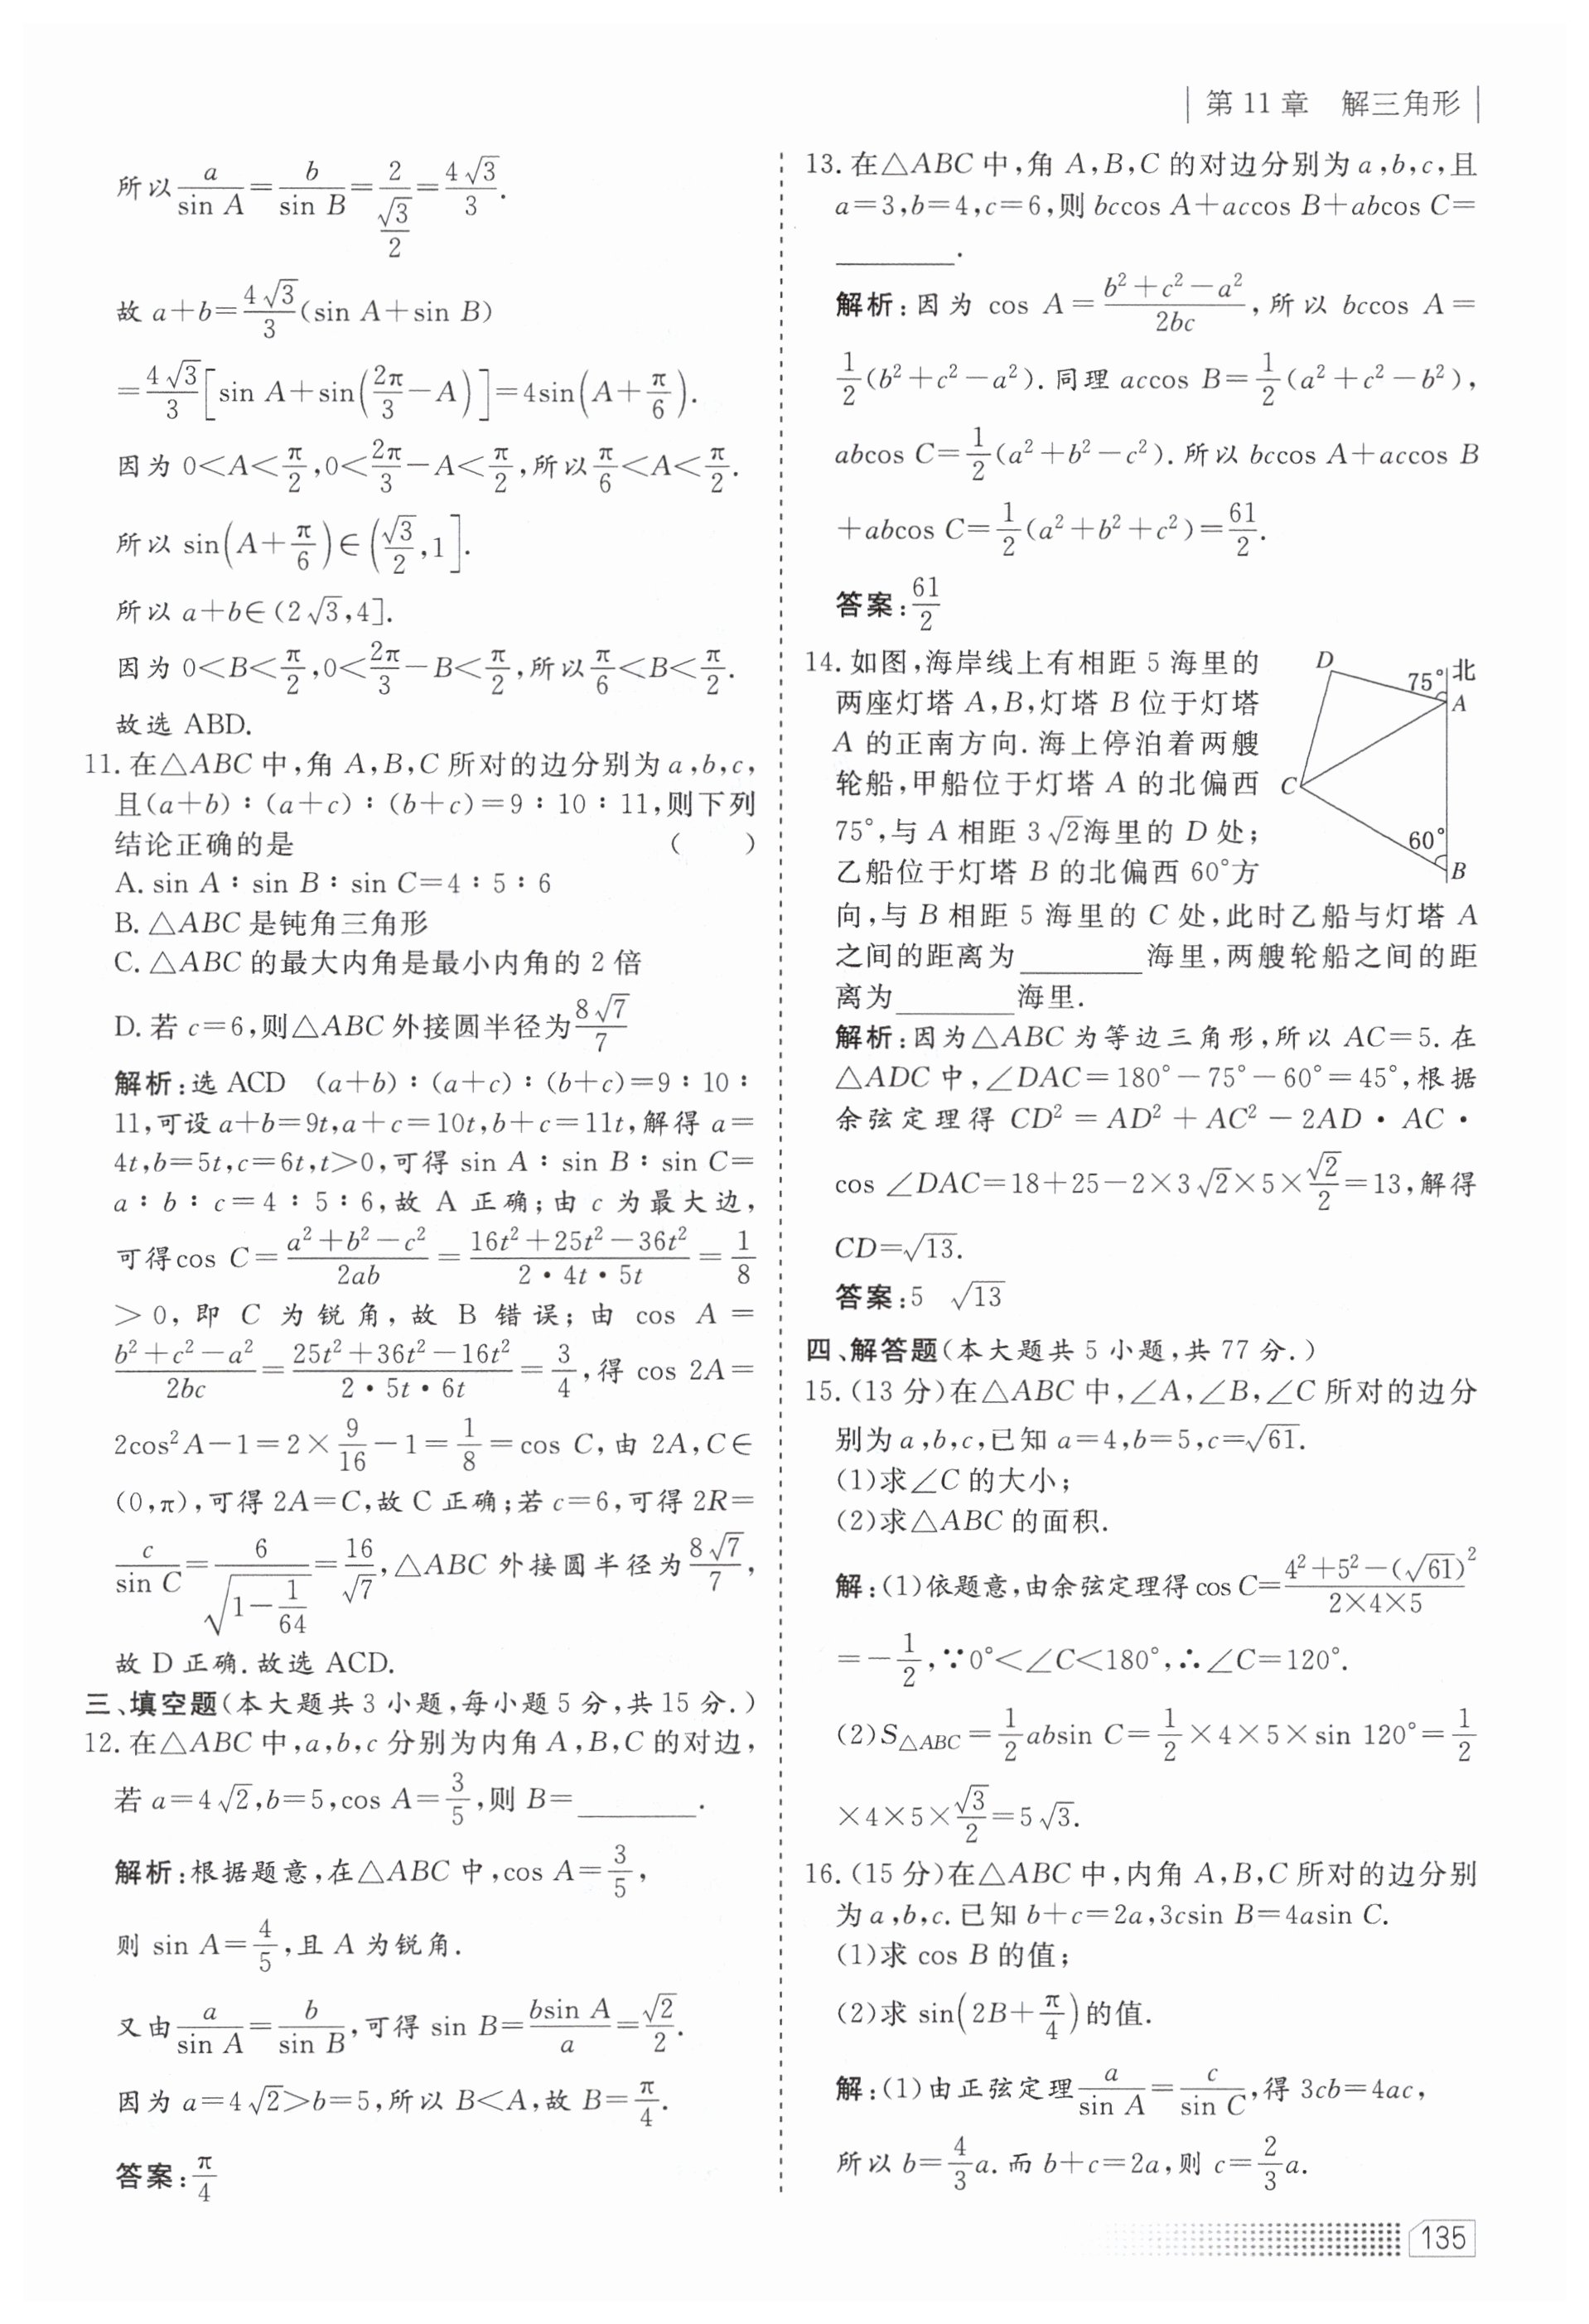 第 11 章　解三角形
所以 a/sin A = b/sin B = 2/(√3/2) = 4√3/3.
故 a+b=4√3/3(sin A+sin B)
=4√3/3[sin A+sin(2π/3−A)]=4sin(A+π/6).
因为 0<A<π/2,0<2π/3−A<π/2,所以π/6<A<π/2.
所以 sin(A+π/6)∈(√3/2,1].
所以 a+b∈(2√3,4].
因为 0<B<π/2,0<2π/3−B<π/2,所以π/6<B<π/2.
故选 ABD.
11. 在△ABC 中,角 A,B,C 所对的边分别为 a,b,c,
且(a+b)∶(a+c)∶(b+c)=9∶10∶11,则下列
结论正确的是 (　　)
A. sin A∶sin B∶sin C=4∶5∶6
B. △ABC 是钝角三角形
C. △ABC 的最大内角是最小内角的 2 倍
D. 若 c=6,则△ABC 外接圆半径为8√7/7
解析:选 ACD　(a+b)∶(a+c)∶(b+c)=9∶10∶
11,可设 a+b=9t,a+c=10t,b+c=11t,解得 a=
4t,b=5t,c=6t,t>0,可得 sin A∶sin B∶sin C=
a∶b∶c=4∶5∶6,故 A 正确;由 c 为最大边,
可得cos C=(a²+b²−c²)/2ab=(16t²+25t²−36t²)/(2·4t·5t)=1/8
>0,即 C 为锐角,故 B 错误;由 cos A=
(b²+c²−a²)/2bc=(25t²+36t²−16t²)/(2·5t·6t)=3/4,得 cos 2A=
2cos²A−1=2×9/16−1=1/8=cos C,由 2A,C∈
(0,π),可得 2A=C,故 C 正确;若 c=6,可得 2R=
c/sin C=6/√(1−1/64)=16/√7,△ABC 外接圆半径为8√7/7,
故 D 正确.故选 ACD.
三、填空题(本大题共 3 小题,每小题 5 分,共 15 分.)
12. 在△ABC 中,a,b,c 分别为内角 A,B,C 的对边,
若 a=4√2,b=5,cos A=3/5,则 B=________.
解析:根据题意,在△ABC 中,cos A=3/5,
则 sin A=4/5,且 A 为锐角.
又由a/sin A=b/sin B,可得 sin B=bsin A/a=√2/2.
因为 a=4√2>b=5,所以 B<A,故 B=π/4.
答案:π/4
13. 在△ABC 中,角 A,B,C 的对边分别为 a,b,c,且
a=3,b=4,c=6,则 bccos A+accos B+abcos C=
________.
解析:因为 cos A=(b²+c²−a²)/2bc,所以 bccos A=
1/2(b²+c²−a²).同理 accos B=1/2(a²+c²−b²),
abcos C=1/2(a²+b²−c²).所以 bccos A+accos B
+abcos C=1/2(a²+b²+c²)=61/2.
答案:61/2
14. 如图,海岸线上有相距 5 海里的
两座灯塔 A,B,灯塔 B 位于灯塔
A 的正南方向.海上停泊着两艘
轮船,甲船位于灯塔 A 的北偏西
75°,与 A 相距 3√2海里的 D 处;
乙船位于灯塔 B 的北偏西 60°方
向,与 B 相距 5 海里的 C 处,此时乙船与灯塔 A
之间的距离为________海里,两艘轮船之间的距
离为________海里.
D
75°
北
A
C
60°
B
解析:因为△ABC 为等边三角形,所以 AC=5.在
△ADC 中,∠DAC=180°−75°−60°=45°,根据
余弦定理得 CD²=AD²+AC²−2AD·AC·
cos∠DAC=18+25−2×3√2×5×√2/2=13,解得
CD=√13.
答案:5　√13
四、解答题(本大题共 5 小题,共 77 分.)
15. (13 分)在△ABC 中,∠A,∠B,∠C 所对的边分
别为 a,b,c,已知 a=4,b=5,c=√61.
(1)求∠C 的大小;
(2)求△ABC 的面积.
解:(1)依题意,由余弦定理得 cos C=(4²+5²−(√61)²)/(2×4×5)
=−1/2,∵0°<∠C<180°,∴∠C=120°.
(2)S△ABC=1/2absin C=1/2×4×5×sin 120°=1/2
×4×5×√3/2=5√3.
16. (15 分)在△ABC 中,内角 A,B,C 所对的边分别
为 a,b,c.已知 b+c=2a,3csin B=4asin C.
(1)求 cos B 的值;
(2)求 sin(2B+π/4)的值.
解:(1)由正弦定理a/sin A=c/sin C,得 3cb=4ac,
所以 b=4/3a.而 b+c=2a,则 c=2/3a.
135